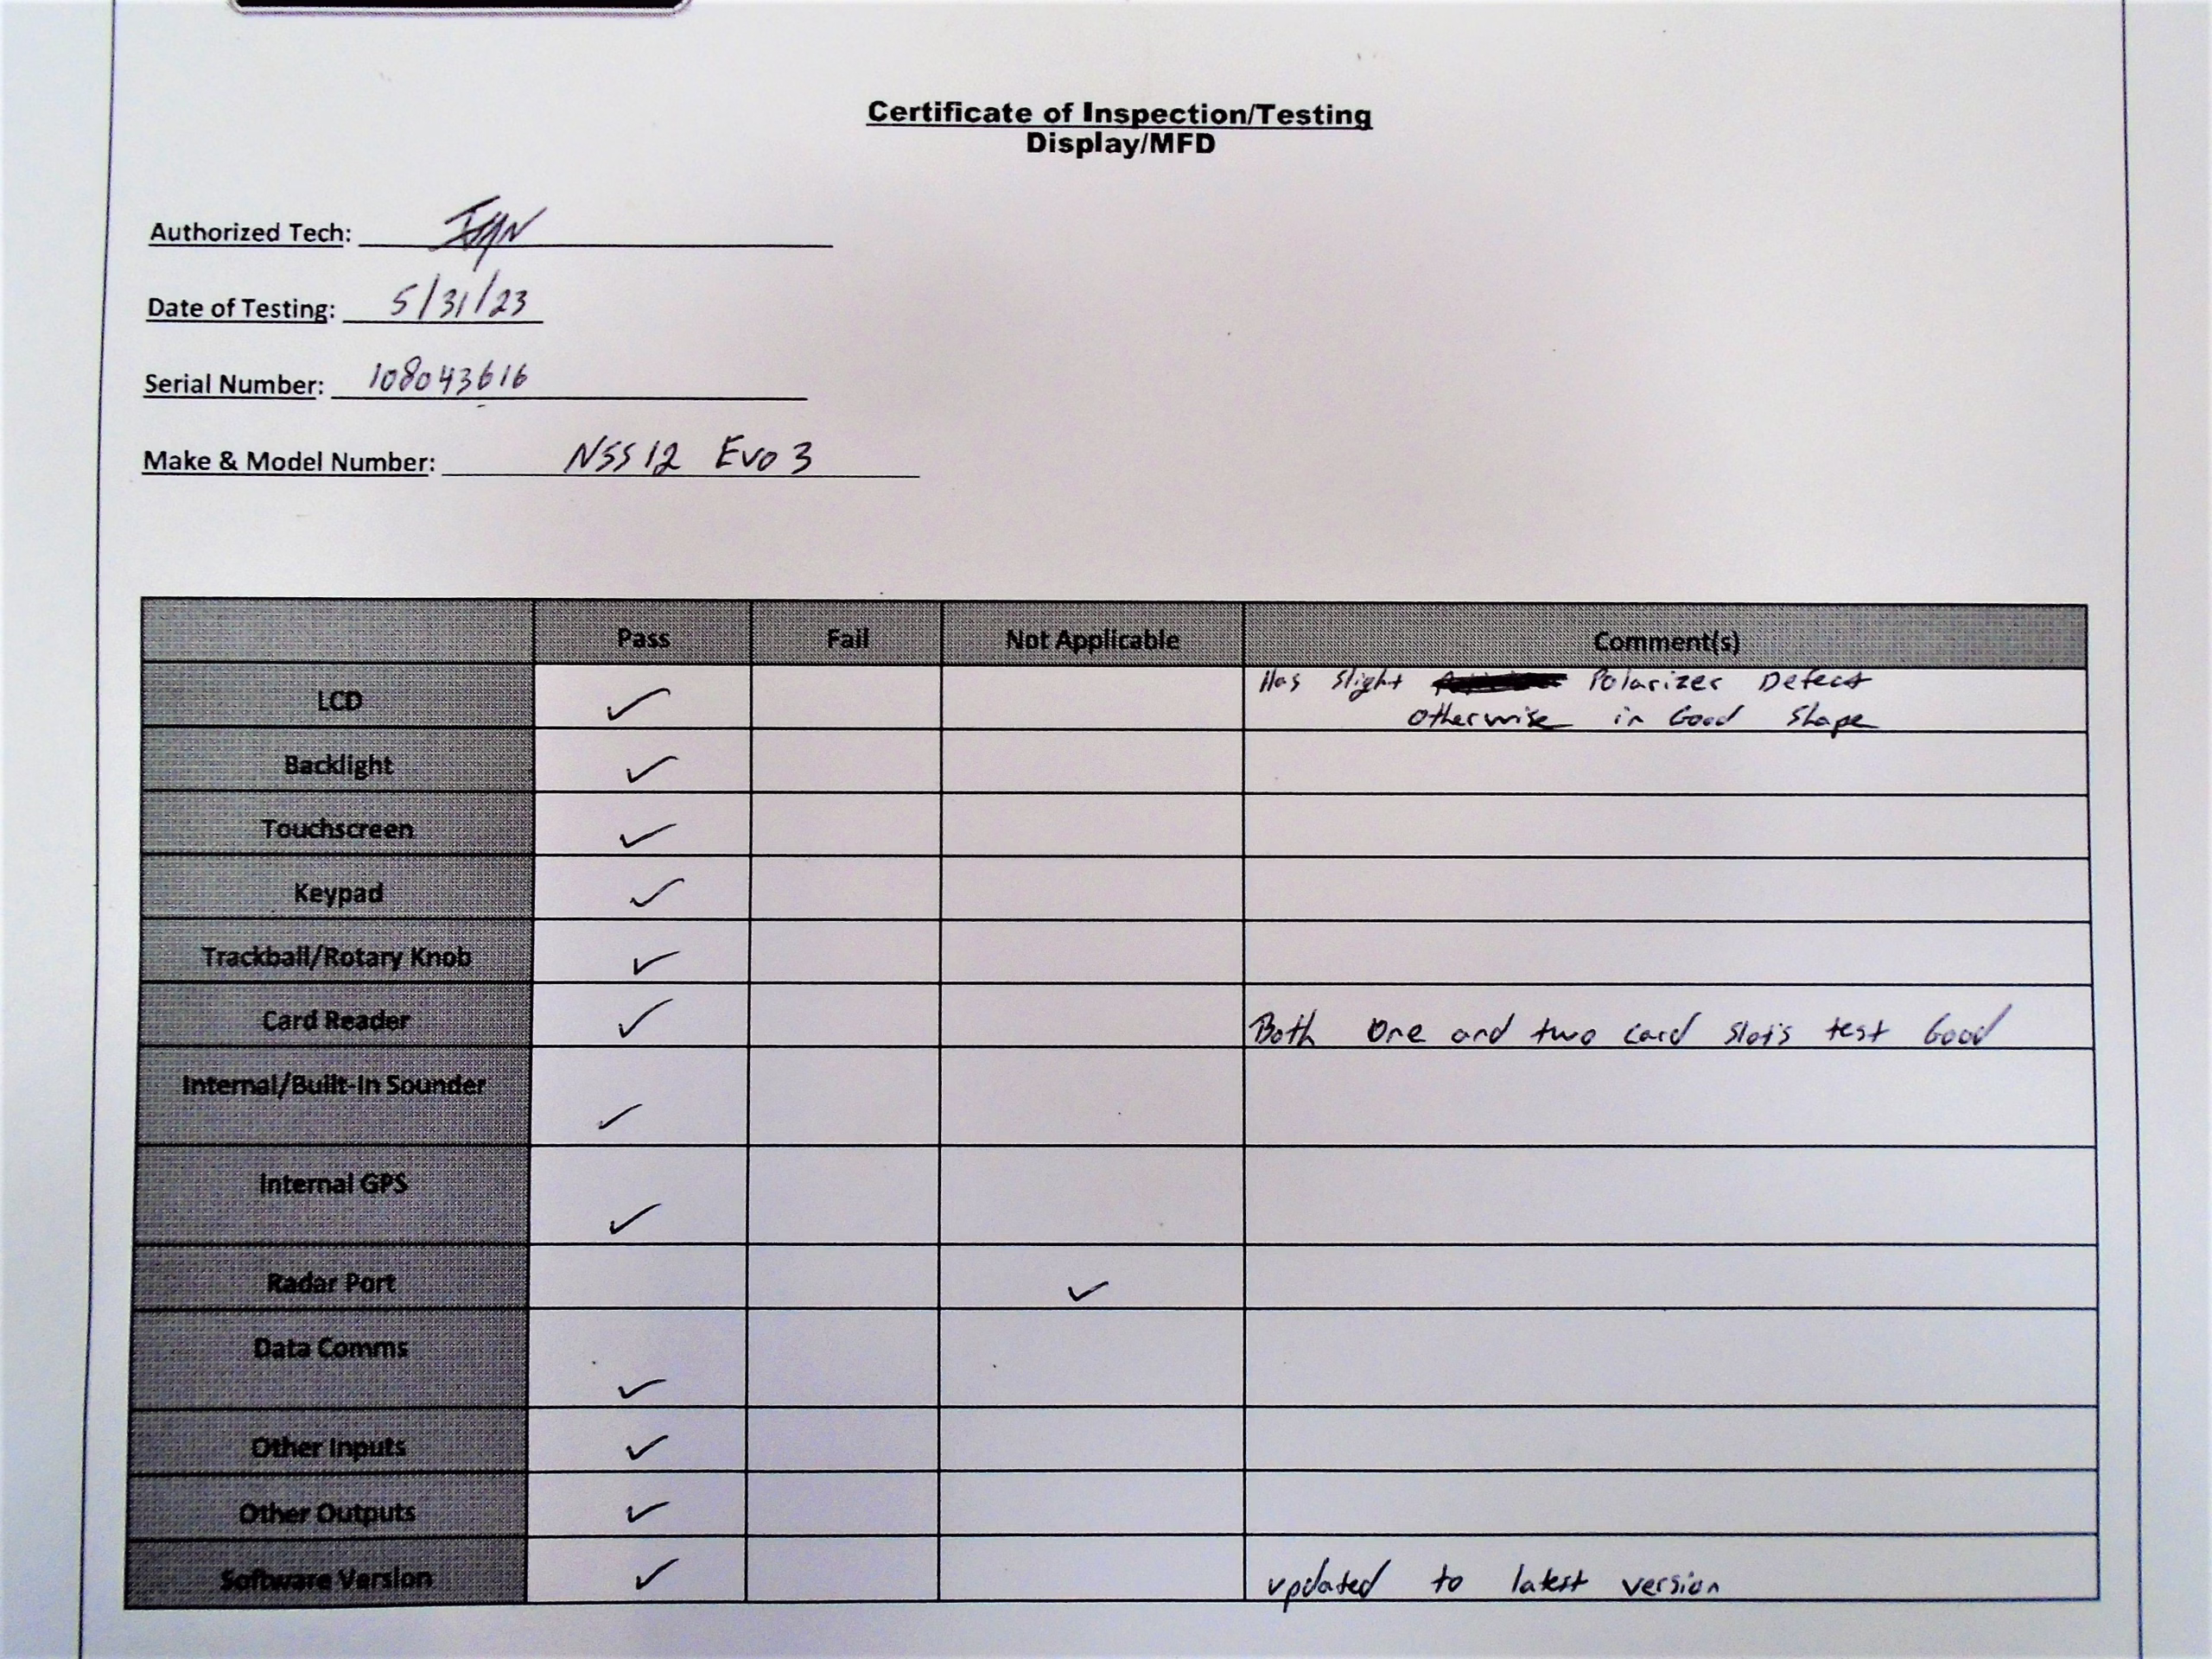 Certificate of Inspection/Testing
Display/MFD
Authorized Tech:
Date of Testing: 5/31/23
Serial Number: 108043616
Make & Model Number: NSS12 Evo 3
Pass Fail Not Applicable Comment(s)
LCD ✓ Has slight Polarizer Defect
otherwise in Good Shape
Backlight ✓
Touchscreen ✓
Keypad ✓
Trackball/Rotary Knob ✓
Card Reader ✓ Both One and two card slots test Good
Internal/Built-In Sounder ✓
Internal GPS ✓
Radar Port ✓
Data Comms ✓
Other Inputs ✓
Other Outputs ✓
Software Version ✓ updated to latest version